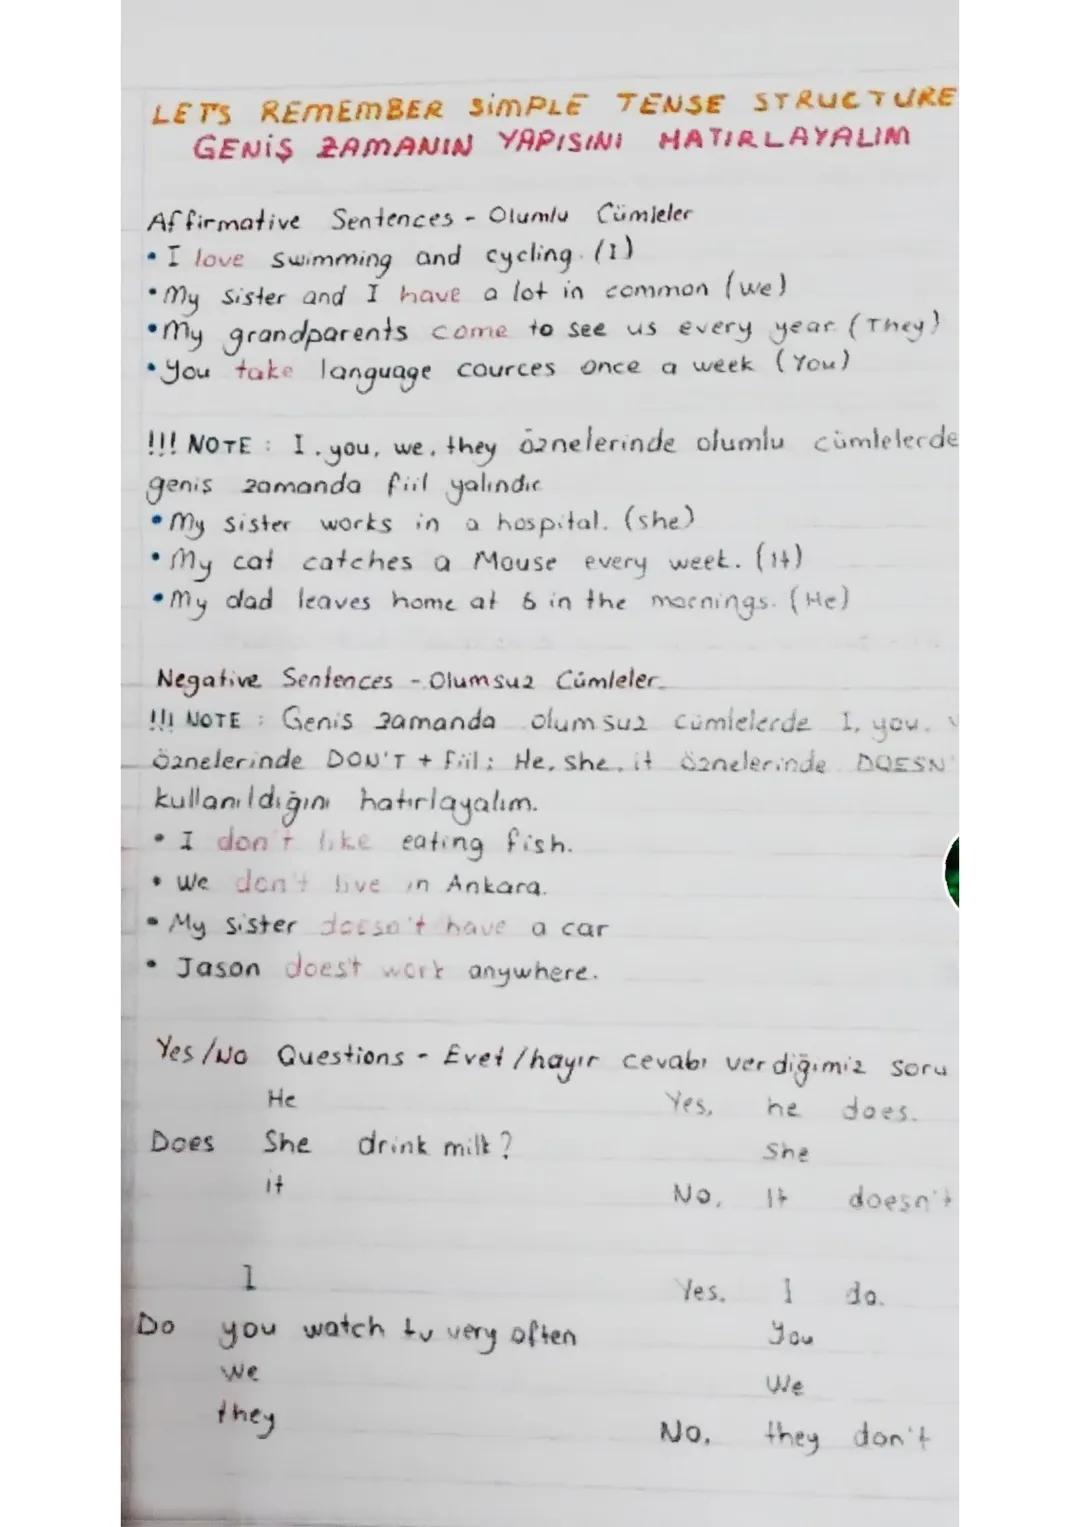 LET'S REMEMBER SİMPLE TENSE STRUCTURE
GENİŞ ZAMANIN YAPISINI HATIRLAYALIM
Affirmative Sentences - Olumlu Cümleler
• I love swimming and cycling. (I)
• My sister and I have a lot in common (we)
• My grandparents come to see us every year. (They)
• You take language cources once a week (You)
!!! NOTE : I, you, we, they öznelerinde olumlu cümlelerde
geniş zamanda fiil yalındır
• My sister works in a hospital. (she)
• My cat catches a Mouse every week. (It)
• My dad leaves home at 6 in the mornings. (He)
Negative Sentences - Olumsuz Cümleler
!!! NOTE : Genis zamanda olumsuz cümlelerde I, you,
öznelerinde DON'T + fiil; He, she, it öznelerinde DOESN'
kullanıldığını hatırlayalım.
• I don't like eating fish.
• We don't live in Ankara.
• My sister doesn't have a car
• Jason does't work anywhere.
Yes/No Questions - Evet/hayır cevabı verdiğimiz soru
He Yes, he does.
Does She drink milk? She
it No, It doesn't
I Yes, I do.
Do you watch tv very often You
we We
they No, they don't